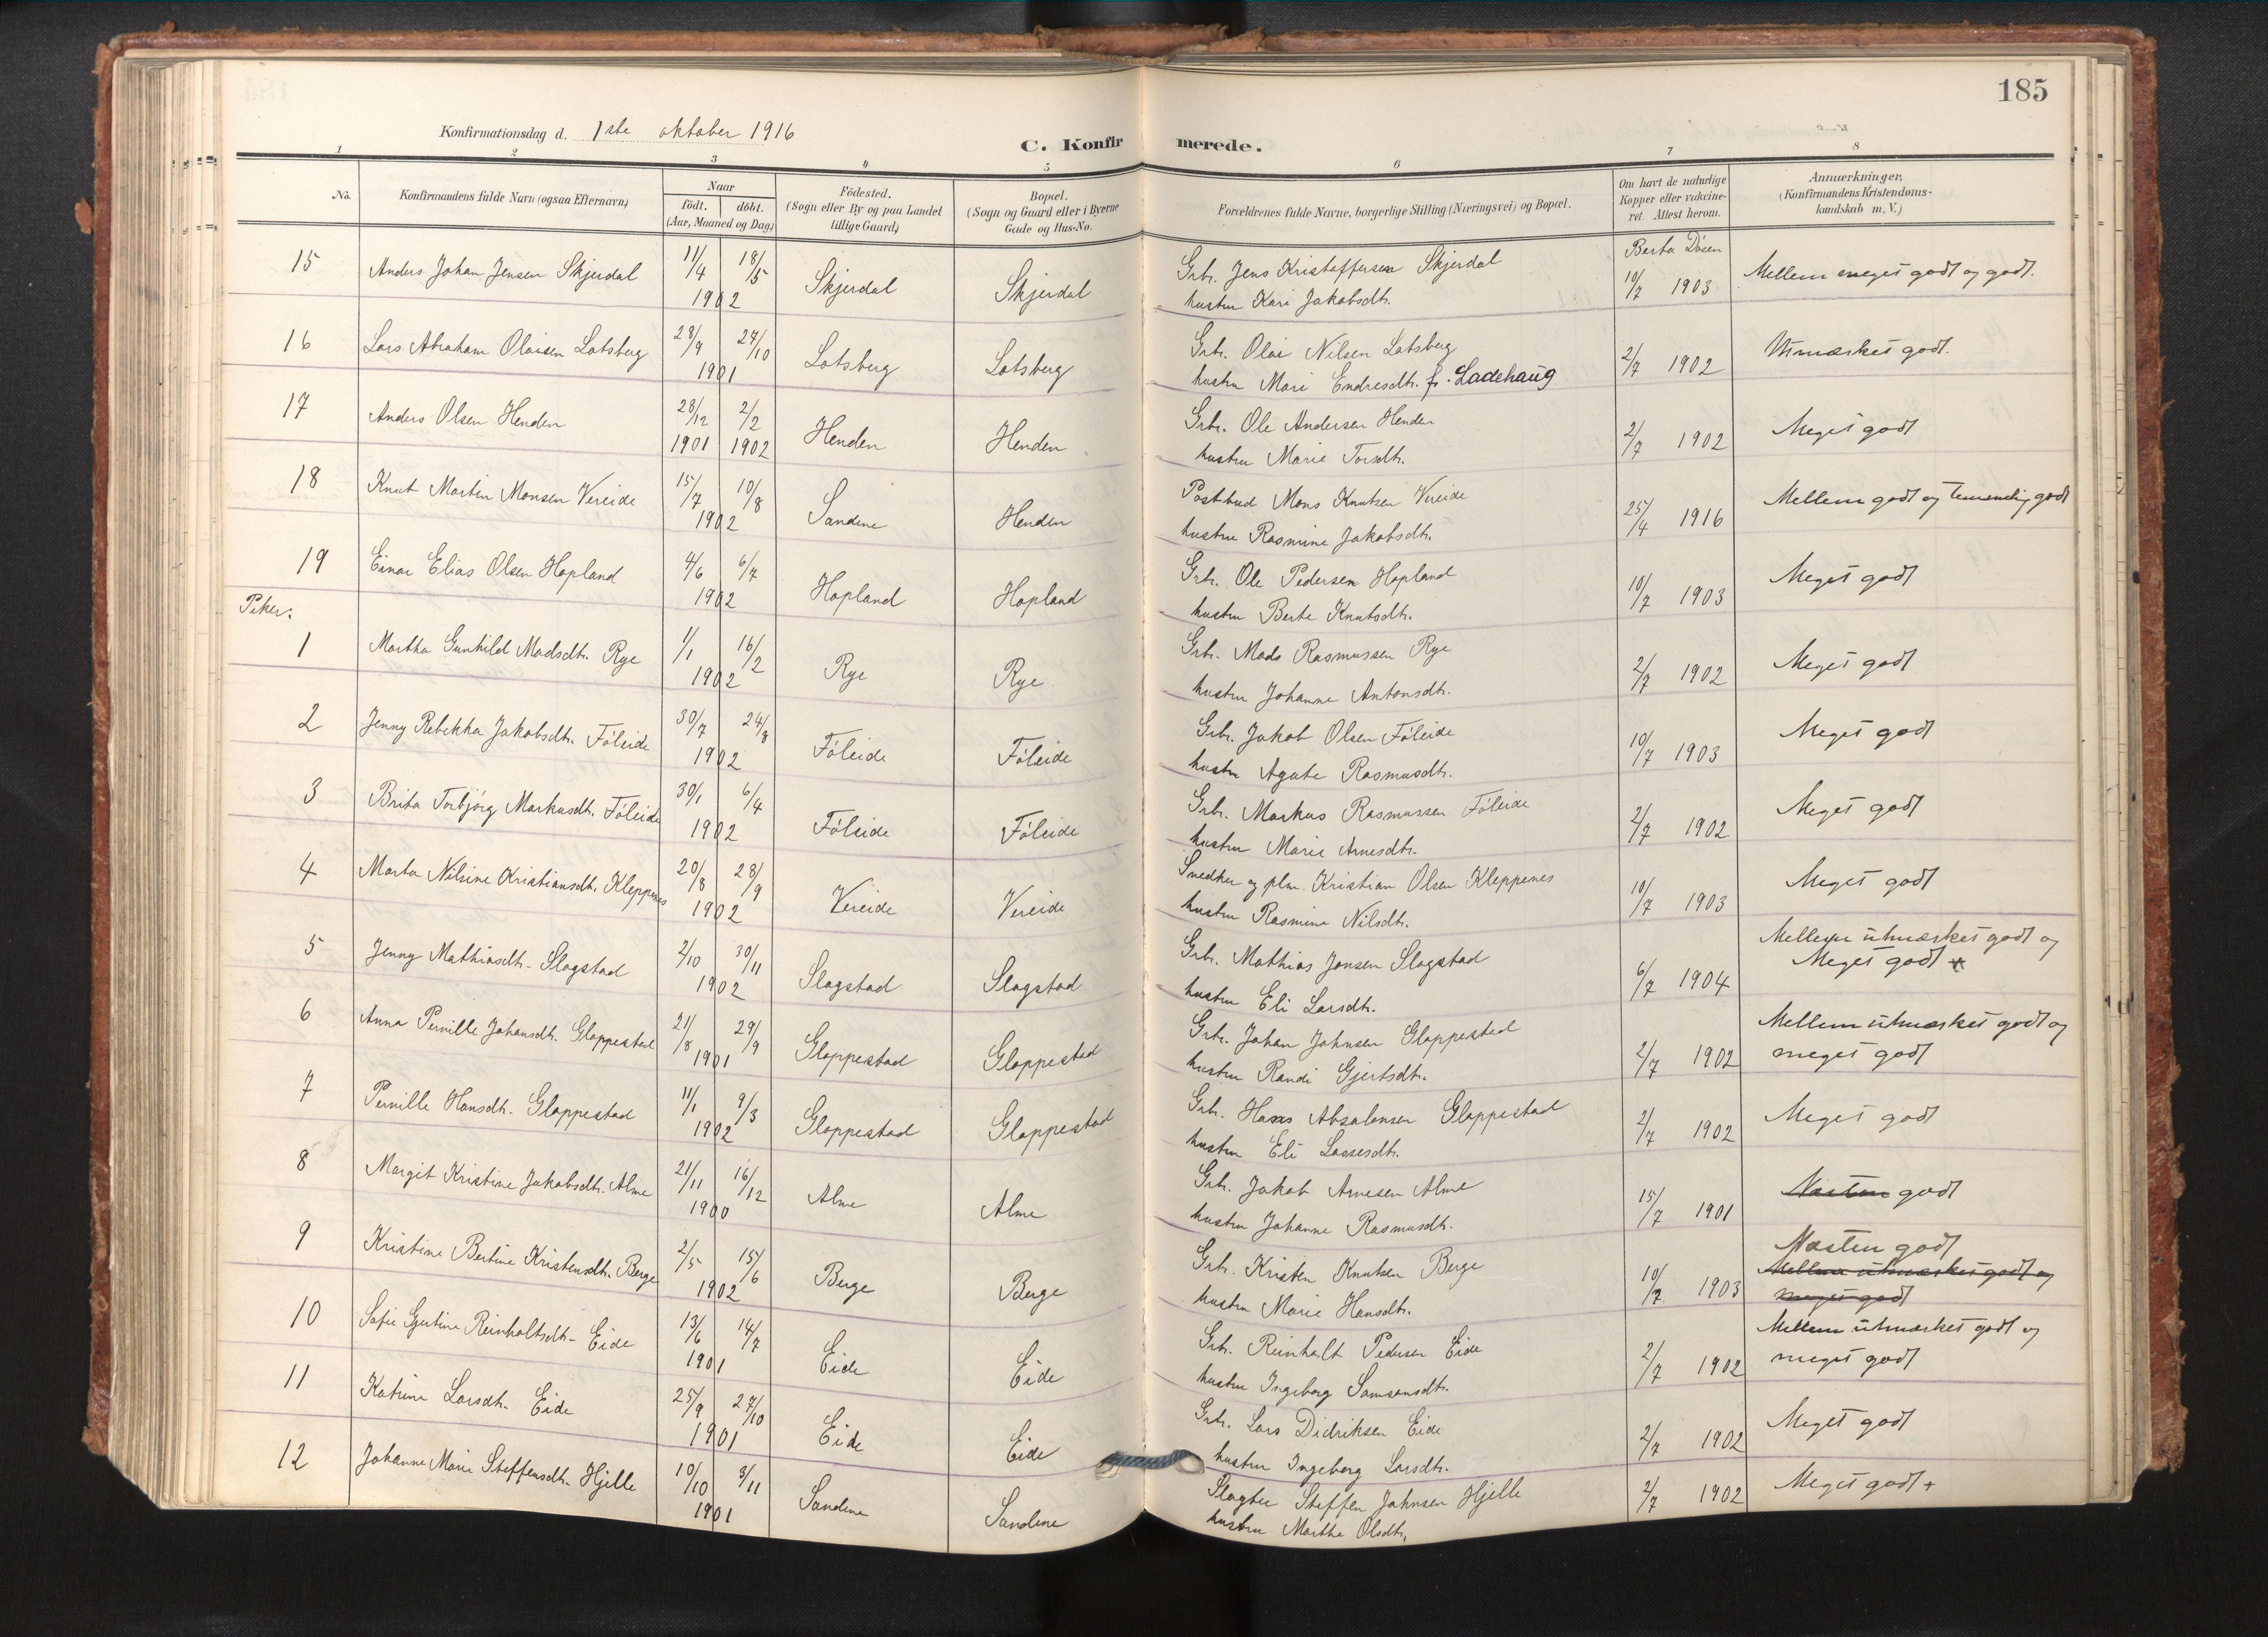 185
Konfirmationsdag d. 1ste oktober 1916
C. Konfirmerede.
1 2 3 4 5 6 7 8
No. Konfirmandens fulde Navn (ogsaa Efternavn) Naar født. døbt. (Aar, Maaned og Dag) Födested. (Sogn eller By og paa Landet tillige Gaard) Bopæl. (Sogn og Gaard eller i Byerne Gade og Hus-No. Forældrenes fulde Navne, borgerlige Stilling (Næringsvei) og Bopæl. Om havt de naturlige Kopper eller vakcineret. Attest herom. Anmerkninger. (Konfirmandens Kristendomskundskab m. V.)
15 Anders Johan Jensen Skjerdal 11/4 18/5 1902 Skjerdal Skjerdal Grbr. Jens Kristoffersen Skjerdal Berta Døsen 10/7 1903 Mellem meget godt og godt.
hustru Kari Jakobsdtr.
16 Lars Abraham Olaisen Lotsberg 28/9 27/10 1901 Lotsberg Lotsberg Grbr. Olai Nilsen Lotsberg 2/7 1902 Utmærket godt.
hustru Mari Endresdtr. f. Ladehaug
17 Anders Olsen Henden 28/12 1901 2/2 1902 Henden Henden Grbr. Ole Andersen Henden 2/7 1902 Meget godt
hustru Marie Torsdtr.
18 Knut Martin Monsen Vereide 15/7 10/8 1902 Sandene Henden Postbud Mons Knutsen Vereide 25/4 1916 Mellem godt og temmelig godt
hustru Rasmine Jakobsdtr.
19 Einar Elias Olsen Hopland 4/6 6/7 1902 Hopland Hopland Grbr. Ole Pedersen Hopland 10/7 1903 Meget godt
hustru Berte Knutsdtr.
Piker:
1 Martha Gunhild Madsdtr. Rye 1/1 16/2 1902 Rye Rye Grbr. Mads Rasmussen Rye 2/7 1902 Meget godt
hustru Johanne Antonsdtr.
2 Jenny Rebekka Jakobsdtr. Føleide 30/7 24/8 1902 Føleide Føleide Grbr. Jakob Olsen Føleide 10/7 1903 Meget godt
hustru Agate Rasmusdtr.
3 Brita Torbjørg Markusdtr. Føleide 30/1 6/4 1902 Føleide Føleide Grbr. Markus Rasmussen Føleide 2/7 1902 Meget godt
hustru Marie Arnesdtr.
4 Marta Nilsine Kristiansdtr. Kleppenes 20/8 28/9 1902 Vereide Vereide Snedker og plm. Kristian Olsen Kleppenes 10/7 1903 Meget godt
hustru Rasmine Nilsdtr.
5 Jenny Mathiasdtr. Slagstad 2/10 30/11 1902 Slagstad Slagstad Grbr. Mathias Jonsen Slagstad 6/7 1904 Mellem utmærket godt og Meget godt +
hustru Eli Larsdtr.
6 Anna Pernille Johansdtr. Gloppestad 21/8 29/9 1901 Gloppestad Gloppestad Grbr. Johan Johnsen Gloppestad 2/7 1902 Mellem utmærket godt og meget godt
hustru Randi Gjertsdtr.
7 Pernille Hansdtr. Gloppestad 11/1 9/3 1902 Gloppestad Gloppestad Grbr. Hans Absalonsen Gloppestad 2/7 1902 Meget godt
hustru Eli Lassesdtr.
8 Margit Kristine Jakobsdtr. Alme 21/11 16/12 1900 Alme Alme Grbr. Jakob Arnesen Alme 15/7 1901 Næsten godt
hustru Johanne Rasmusdtr.
9 Kristine Bertine Kristensdtr. Berge 2/5 15/6 1902 Berge Berge Grbr. Kristen Knutsen Berge 10/7 1903 Næsten godt Mellem utmærket godt og meget godt
hustru Marie Hansdtr.
10 Sofie Gjertine Reinholtsdtr. Eide 13/6 14/7 1901 Eide Eide Grbr. Reinholt Pedersen Eide 2/7 1902 Mellem utmærket godt og meget godt
hustru Ingeborg Samsonsdtr.
11 Katrine Larsdtr. Eide 25/9 27/10 1901 Eide Eide Grbr. Lars Didriksen Eide 2/7 1902 Meget godt
hustru Ingeborg Larsdtr.
12 Johanne Marie Steffensdtr. Hjelle 10/10 3/11 1901 Sandene Sandene Slagter Steffen Johnsen Hjelle 2/7 1902 Meget godt +
hustru Marthe Olsdtr.